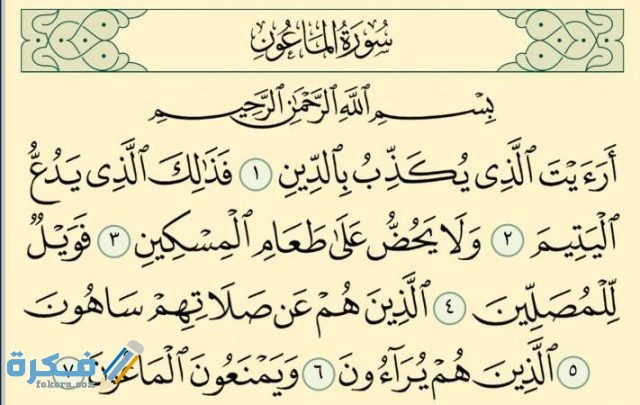 سُورَةُ المَاعُونِ
بِسْمِ ٱللَّهِ ٱلرَّحْمَٰنِ ٱلرَّحِيمِ
أَرَءَيْتَ ٱلَّذِى يُكَذِّبُ بِٱلدِّينِ ١ فَذَٰلِكَ ٱلَّذِى يَدُعُّ
ٱلْيَتِيمَ ٢ وَلَا يَحُضُّ عَلَىٰ طَعَامِ ٱلْمِسْكِينِ ٣ فَوَيْلٌ
لِّلْمُصَلِّينَ ٤ ٱلَّذِينَ هُمْ عَن صَلَاتِهِمْ سَاهُونَ
٥ ٱلَّذِينَ هُمْ يُرَآءُونَ ٦ وَيَمْنَعُونَ ٱلْمَاعُونَ ٧
فكرة
fokera.com